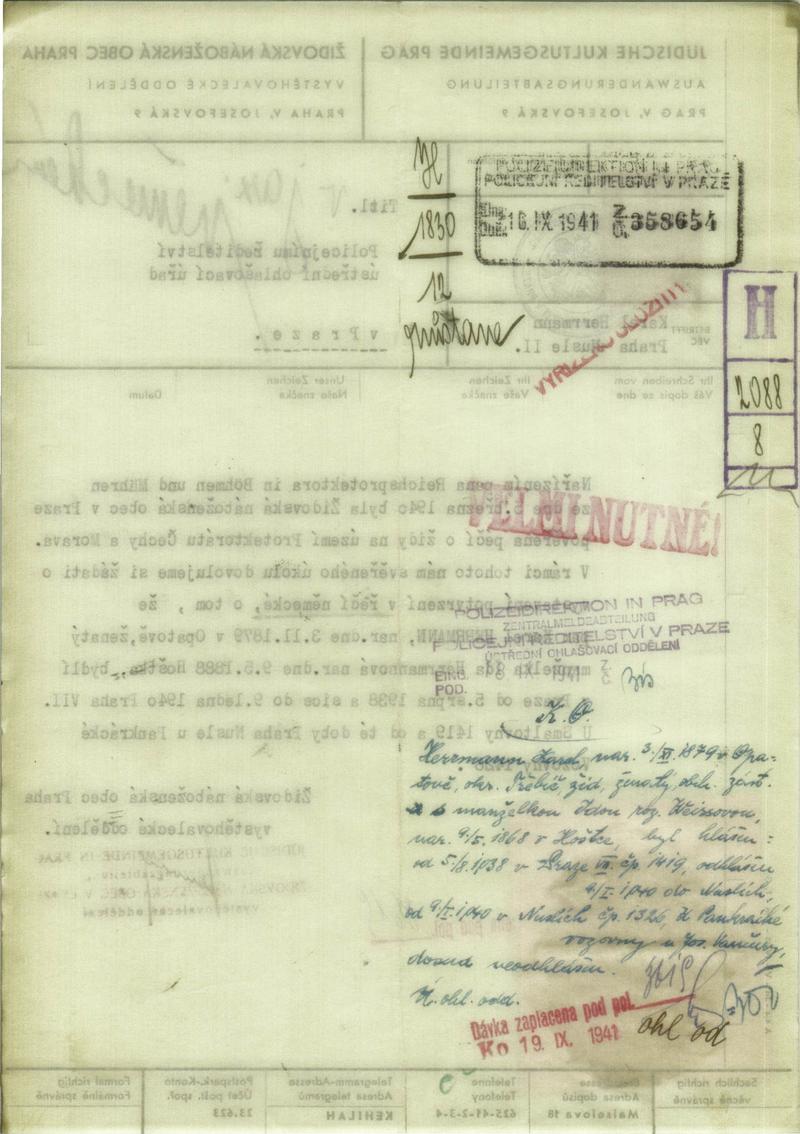 ŽIDOVSKÁ NÁBOŽENSKÁ OBEC PRAHA
VYSTĚHOVALECKÉ ODDĚLENÍ
PRAHA V, JOSEFOVSKÁ 9
JÜDISCHE KULTUSGEMEINDE PRAG
AUSWANDERUNGSABTEILUNG
PRAG V, JOSEFOVSKÁ 9
Titl.
Policejnímu ředitelství
ústřední ohlašovací úřad
v P r a z e .
H
1830
12
zůstane
POLIZEIDIREKTION IN PRAG
POLICEJNÍ ŘEDITELSTVÍ V PRAZE
Eing.
Doš. 16. IX. 1941 358654
BETRIFFT
VĚC
Karel Herrmann
Praha Nusle II.
H
2088
8
Ihr Schreiben vom
Váš dopis ze dne
Ihr Zeichen
Vaše značka
Unser Zeichen
Naše značka
Datum
VELMI NUTNÉ!
Nařízením pana Reichsprotektora in Böhmen und Mähren
ze dne 5. března 1940 byla Židovská náboženská obec v Praze
pověřena péčí o židy na území Protektorátu Čechy a Morava.
V rámci tohoto nám svěřeného úkolu dovolujeme si žádati o
potvrzení v řeči německé, o tom , že
HERRMANN, nar.dne 3.11.1879 v Opatově,ženatý
manželka Ida Herrmannová nar.dne 9.5.1888 bydlí
Praze od 5.srpna 1938 a sice do 9.ledna 1940 Praha VII.
U Smaltovny 1419 a od té doby Praha Nusle u Pankrácké
POLIZEIDIREKTION IN PRAG
ZENTRALMELDEABTEILUNG
POLICEJNÍ ŘEDITELSTVÍ V PRAZE
ÚSTŘEDNÍ OHLAŠOVACÍ ODDĚLENÍ
EING.
POD.
Židovská náboženská obec Praha
vystěhovalecké oddělení.
K. O.
Herrmann Karel nar. 3./XI. 1879 v Opa-
tově, okr. Třebíč, žid, ženatý, obch. zást.
s manželkou Idou roz. Weissovou,
nar. 9/5. 1868 v Hoštce, byl hlášen:
od 5/8. 1938 v Praze VII. čp. 1419, odhlášen
9/I. 1940 do Nuslích,
od 9/I. 1940 v Nuslích čp. 1326, K Pankrácké
vozovny u Jos. Vančury,
dosud neodhlášen.
Ú. ohl. odd.
ohl od
Dávka zaplacena pod pol.
Ko 19. IX. 1941
Sachlich richtig
věcně správně
Adresa dopisů
Maiselova 18
Telefone
Telefony
625-41-2-3-4
Telegramm-Adresse
Adresa telegramů
KEHILAH
Postspark.-Konto
Účet pošt. spoř.
23.623
Formal richtig
Formálně správně